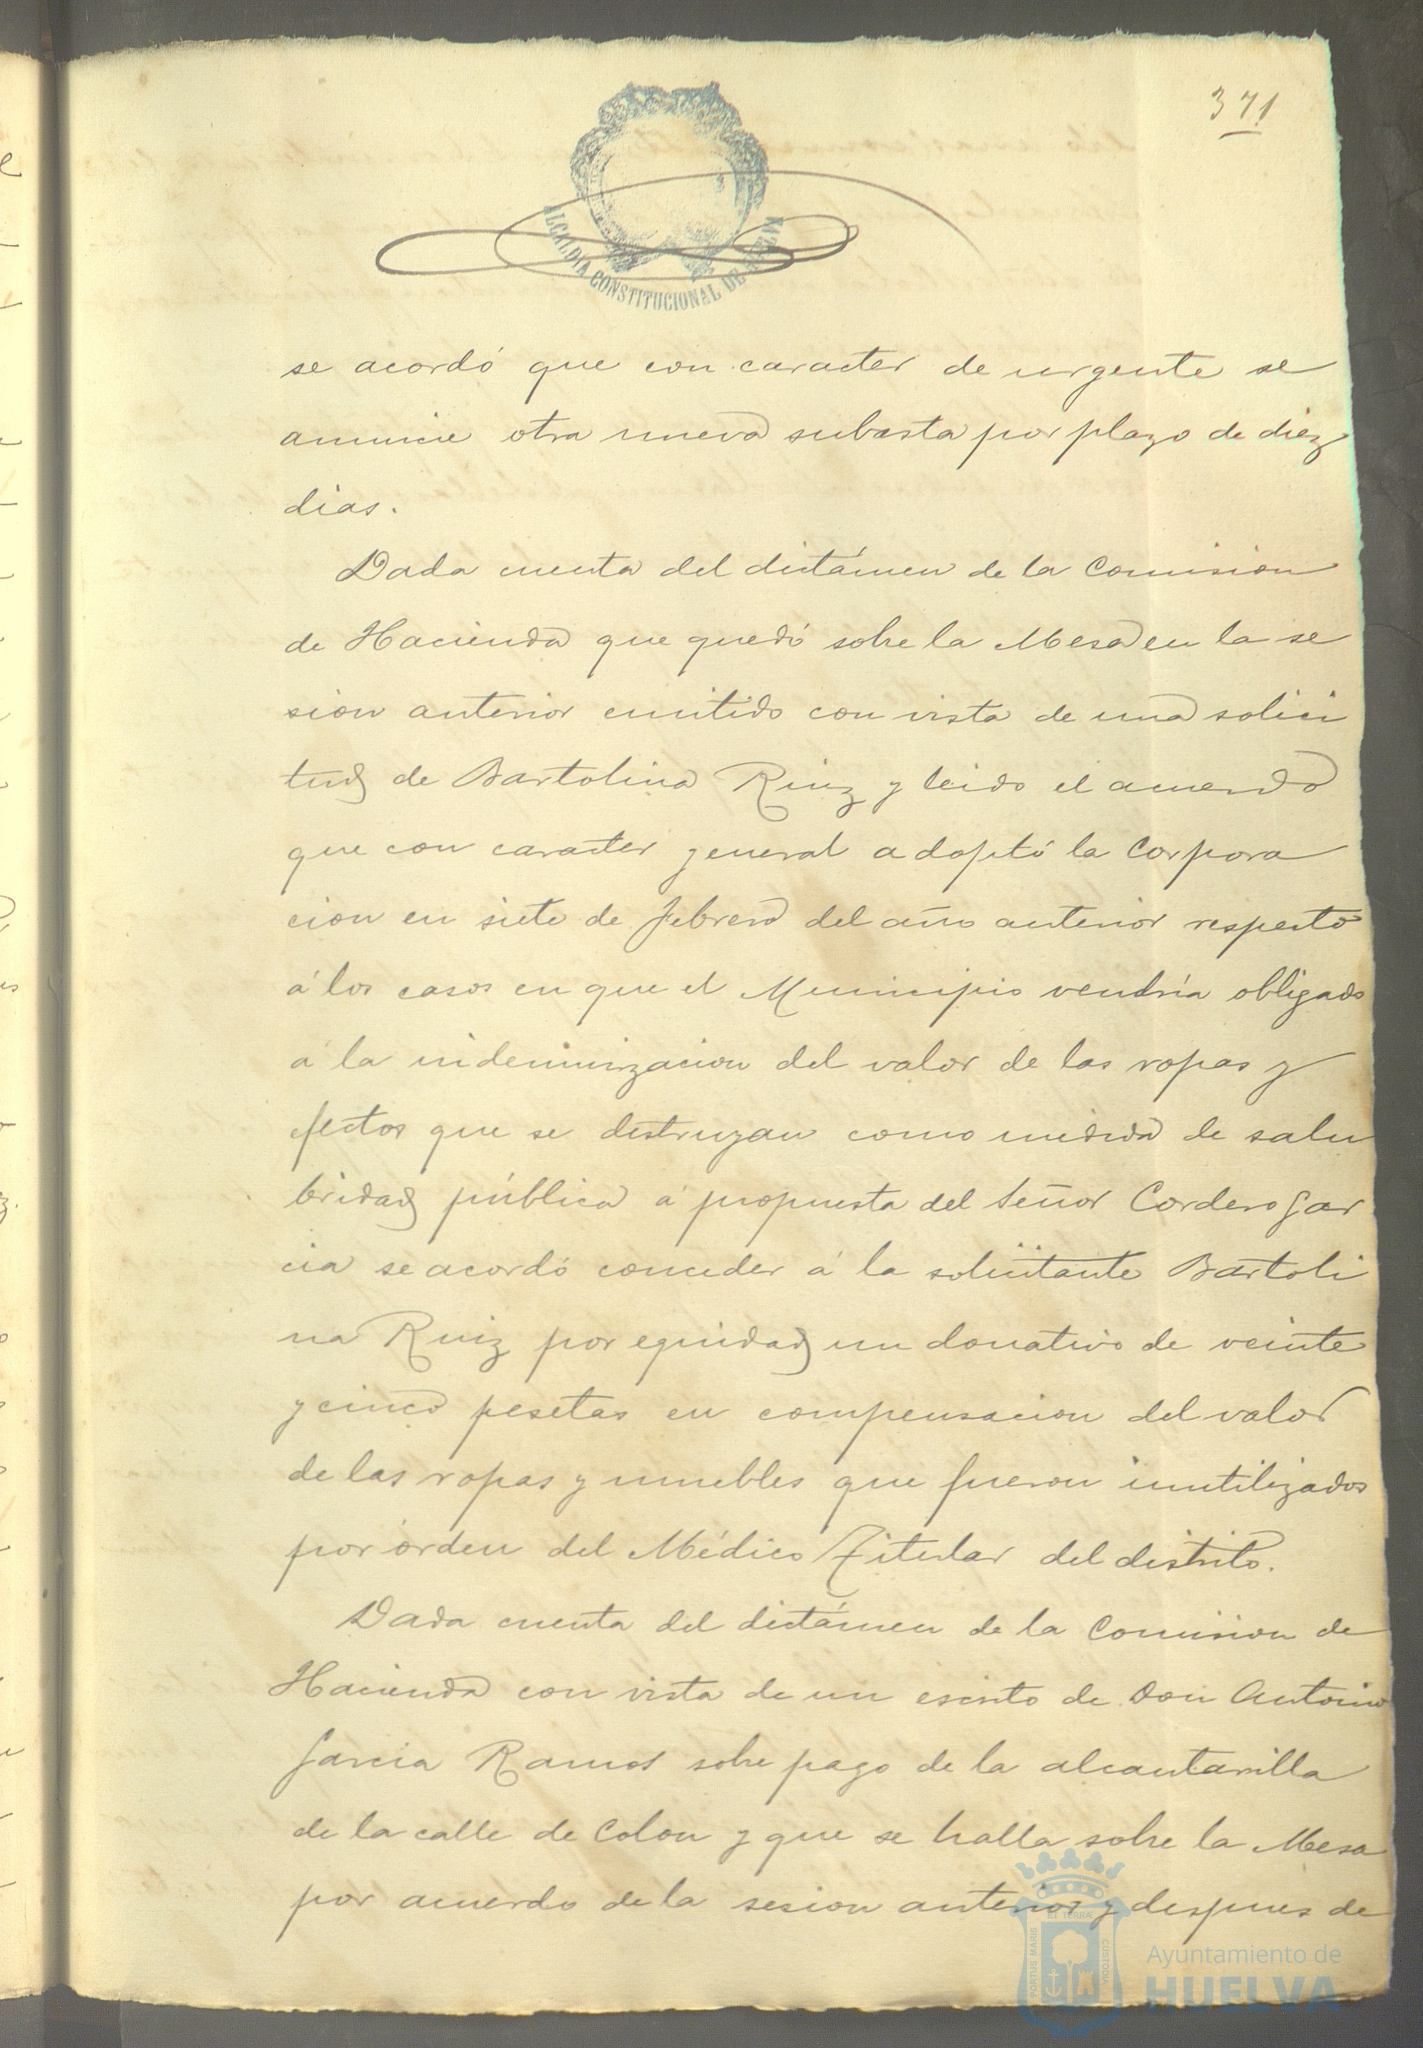 371
ALCALDIA CONSTITUCIONAL DE HUELVA
se acordó que con caracter de urgente se
anuncie otra nueva subasta por plazo de diez
dias.
Dada cuenta del dictámen de la Comision
de Hacienda que quedó sobre la Mesa en la se
sion anterior emitido con vista de una solici
tud de Bartolina Ruiz y leido el acuerdo
que con caracter general adoptó la Corpora
cion en siete de febrero del año anterior respecto
á los casos en que el Municipio vendría obligado
á la indemnizacion del valor de las ropas y
efectos que se destruyan como medida de salu
bridad pública á propuesta del Señor Cordero Gar
cia se acordó conceder á la solicitante Bartoli
na Ruiz por equidad un donativo de veinte
y cinco pesetas en compensacion del valor
de las ropas y muebles que fueron inutilizados
por órden del Médico Titular del distrito.
Dada cuenta del dictámen de la Comision de
Hacienda con vista de un escrito de Don Antonio
Garcia Ramos sobre pago de la alcantarilla
de la calle de Colon y que se halla sobre la Mesa
por acuerdo de la sesion anterior y despues de
PORTUS MARIS
ET TERRÆ
CUSTODIA
Ayuntamiento de
HUELVA